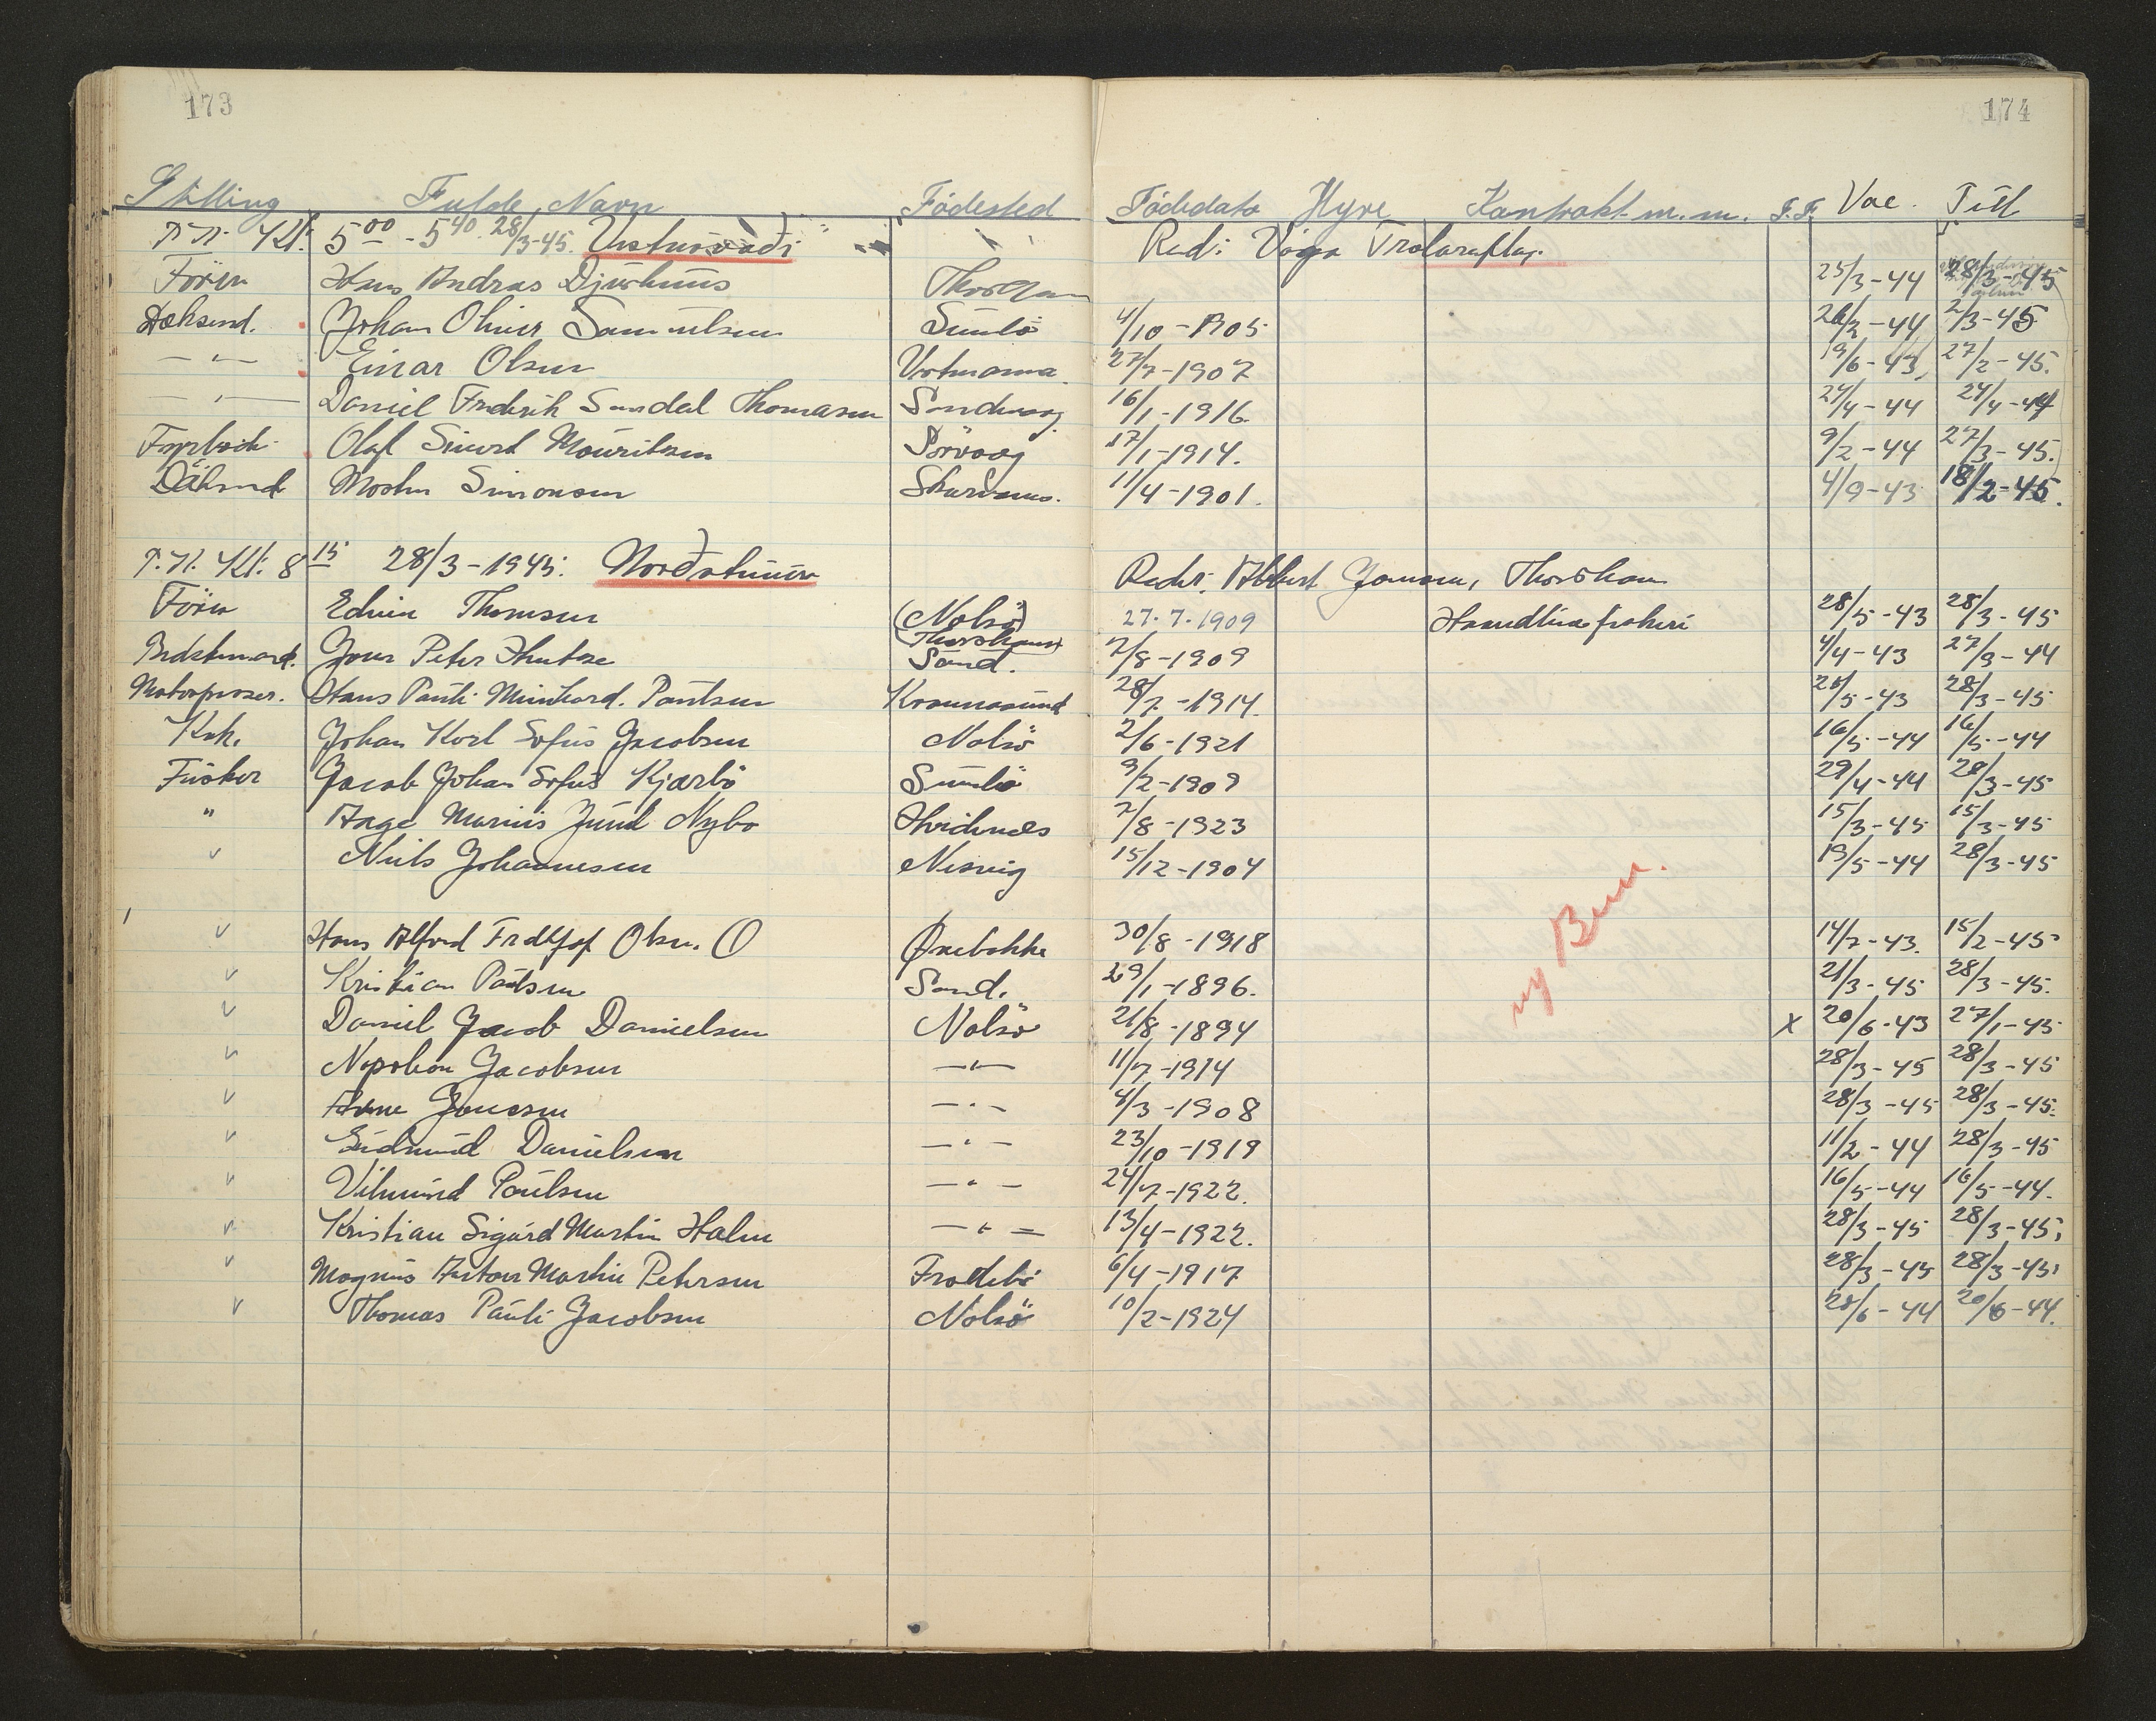 173
174
Stilling Fulde Navn Födested Födedato Hyre Kontrakt m. m. F.F. Vac. Till
P.N. Kl. 5 00 - 5 40. 28/3-45. Vesturvarði Red: Vága Trolaraflag.
Förer Hans Andras Djurhuus Thorshavn 25/3-44 28/3-45
Dæksmd. Johan Oliver Samuelsen Sumbö 4/10-1905 2/3-45
—"— Einar Olsen Vestmanna. 27/7-1907 19/6-43 27/2-45.
—"— Daniel Frederik Sundal Thomasen Sandvaag 16/1-1916. 24/4-44 24/4-44
Fyrböder Olaf Sivert Mouritsen Sörvaag 17/1-1914. 9/2-44 27/3-45.
Däksmd Morten Simonsen Skarvanes. 11/4-1901. 4/9-43 18/2-45.
P.N. Kl. 8 15 28/3-1945. Norðstjörnan Reder: Albert Joensen, Thorshavn
Förer Edvin Thomsen (Nolsö) (Thorshavn) 27.7.1909 Haandlinefiskeri 28/5-43 28/3-45
Bedstemand. Joen Peter Hentze Sand. 7/8-1909 4/4-43 27/3-44
Motorpasser. Hans Pauli Meinhard. Poulsen Kvannasund 28/7-1914. 28/5-43 28/3-45
Kok. Johan Karl Sofus Jacobsen Nolsö 2/6-1921 16/5-44 16/5-44
Fisker Jacob Johan Sofus Kjærbö Sumbö 9/2-1909 29/4-44 28/3-45
" Aage Marius Juul Nybo Hvidenæs 7/8-1923 15/3-45 15/3-45
" Niels Johannesen Nesvig 15/12-1904 19/5-44 28/3-45
" Hans Alfred Fridtjof Olsen. O Ørebakke 30/8-1918 14/7-43. 15/2-45
" Kristian Paulsen Sand. 29/1-1896. 21/3-45 28/3-45.
" Daniel Jacob Danielsen Nolsö 21/8-1894 X 20/6-43 27/1-45
" Napoleon Jacobsen —"— 11/7-1914 28/3-45 28/3-45
" Arne Joensen —"— 4/3-1908 28/3-45 28/3-45.
" Eidmund Danielsen —"— 23/10-1919 11/2-44 28/3-45
" Vilmund Poulsen —"— 24/7-1922. 16/5-44 16/5-44.
" Kristian Sigurd Martin Halm —"— 13/4-1922. 28/3-45 28/3-45;
" Magnus Anton Martin Petersen Frodebö 6/4-1917 28/3-45 28/3-45
" Thomas Pauli Jacobsen Nolsö 10/2-1924 20/6-44 20/6-44.
ny Bem.